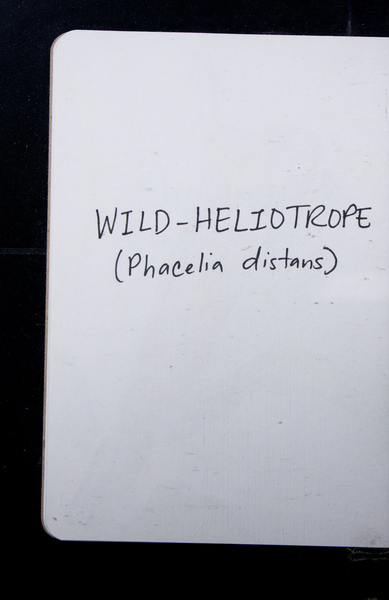 WILD-HELIOTROPE
(Phacelia distans)